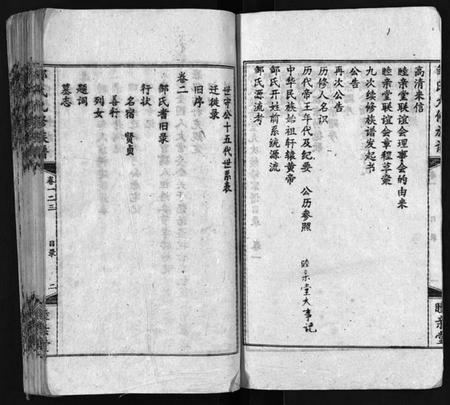 邹氏九修族谱
睦亲堂
高清来信
睦亲堂联谊会理事会的由来
睦亲堂联谊会章程草案
九次续修族谱发起书
公告
再次公告
历修人名识
历代帝王年代及纪要 公历参照
中华民族始祖轩辕黄帝
邹氏开姓前系统源流
邹氏源流考
睦亲堂大事记
世守公十五代世系表
迁徙录
旧序
卷二
邹氏耆旧录
行状
名宦 贤贞
善行
列女
题词
墓志
邹氏九修族谱
卷一二三
目录
二
睦亲堂